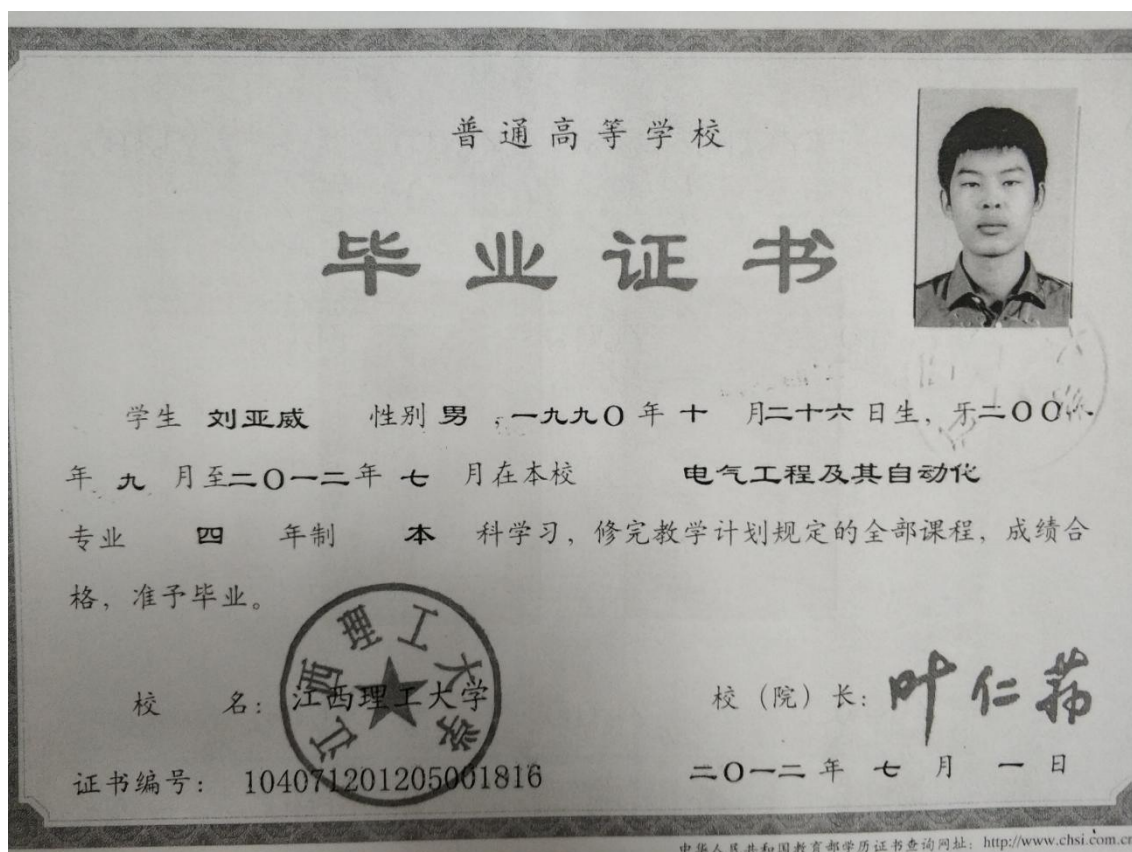 普通高等学校
毕业证书
学生 刘亚威 性别 男 ,一九九〇 年 十 月二十六日生，于二〇〇八
年 九 月至二〇一二年 七 月在本校 电气工程及其自动化
专业 四 年制 本 科学习，修完教学计划规定的全部课程，成绩合
格，准予毕业。
江西理工大学
校 名：江西理工大学 校（院）长：叶仁荪
证书编号： 104071201205001816 二〇一二 年 七 月 一 日
中华人民共和国教育部学历证书查询网址：http://www.chsi.com.cn